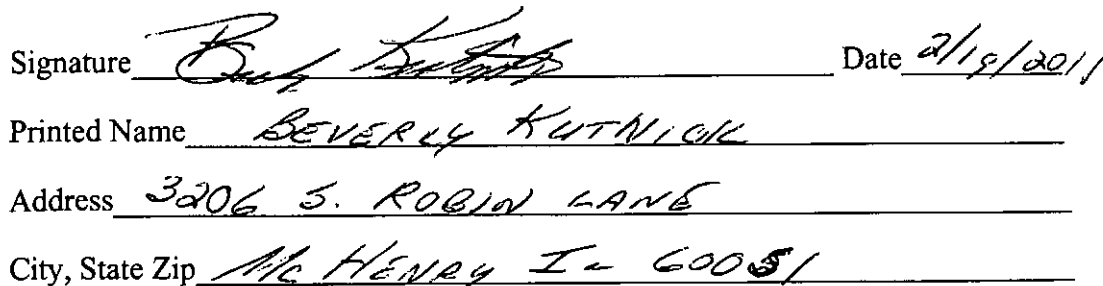 Signature Date 2/19/2011
Printed Name BEVERLY KUTNICK
Address 3206 S. ROBIN LANE
City, State Zip Mc HENRY IL 60051